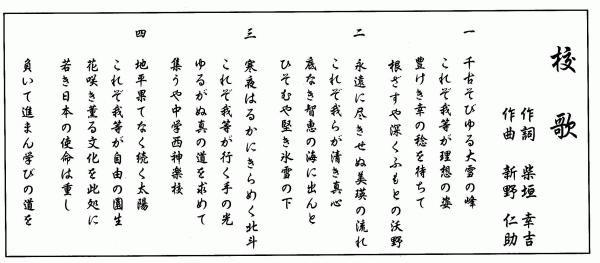 校歌
作詞 柴垣 幸吉
作曲 新野 仁助
一 千古そびゆる大雪の峰
これぞ我等が理想の姿
豊けき幸の稔を待ちて
根ざすや深くふもとの沃野
二 永遠に尽きせぬ美瑛の流れ
これぞ我らが清き真心
底なき智恵の海に出んと
ひそむや堅き氷雪の下
三 寒夜はるかにきらめく北斗
これぞ我等が行く手の光
ゆるがぬ真の道を求めて
集うや中学西神楽校
四 地平果てなく続く太陽
これぞ我等が自由の園生
花咲き薫る文化を此処に
若き日本の使命は重し
負いて進まん学びの道を